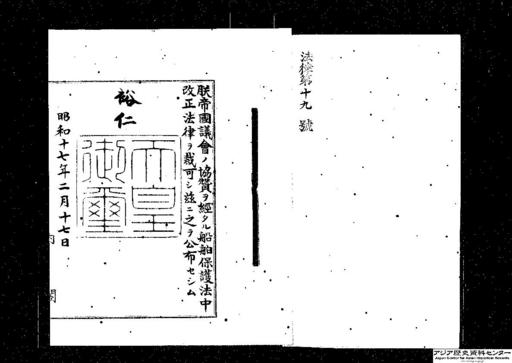 法律第十九號
朕帝國議會ノ協贊ヲ經タル船舶保護法中
改正法律ヲ裁可シ茲ニ之ヲ公布セシム
裕仁
天皇
御璽
昭和十七年二月十七日
内閣
アジア歴史資料センター
Japan Center for Asian Historical Records